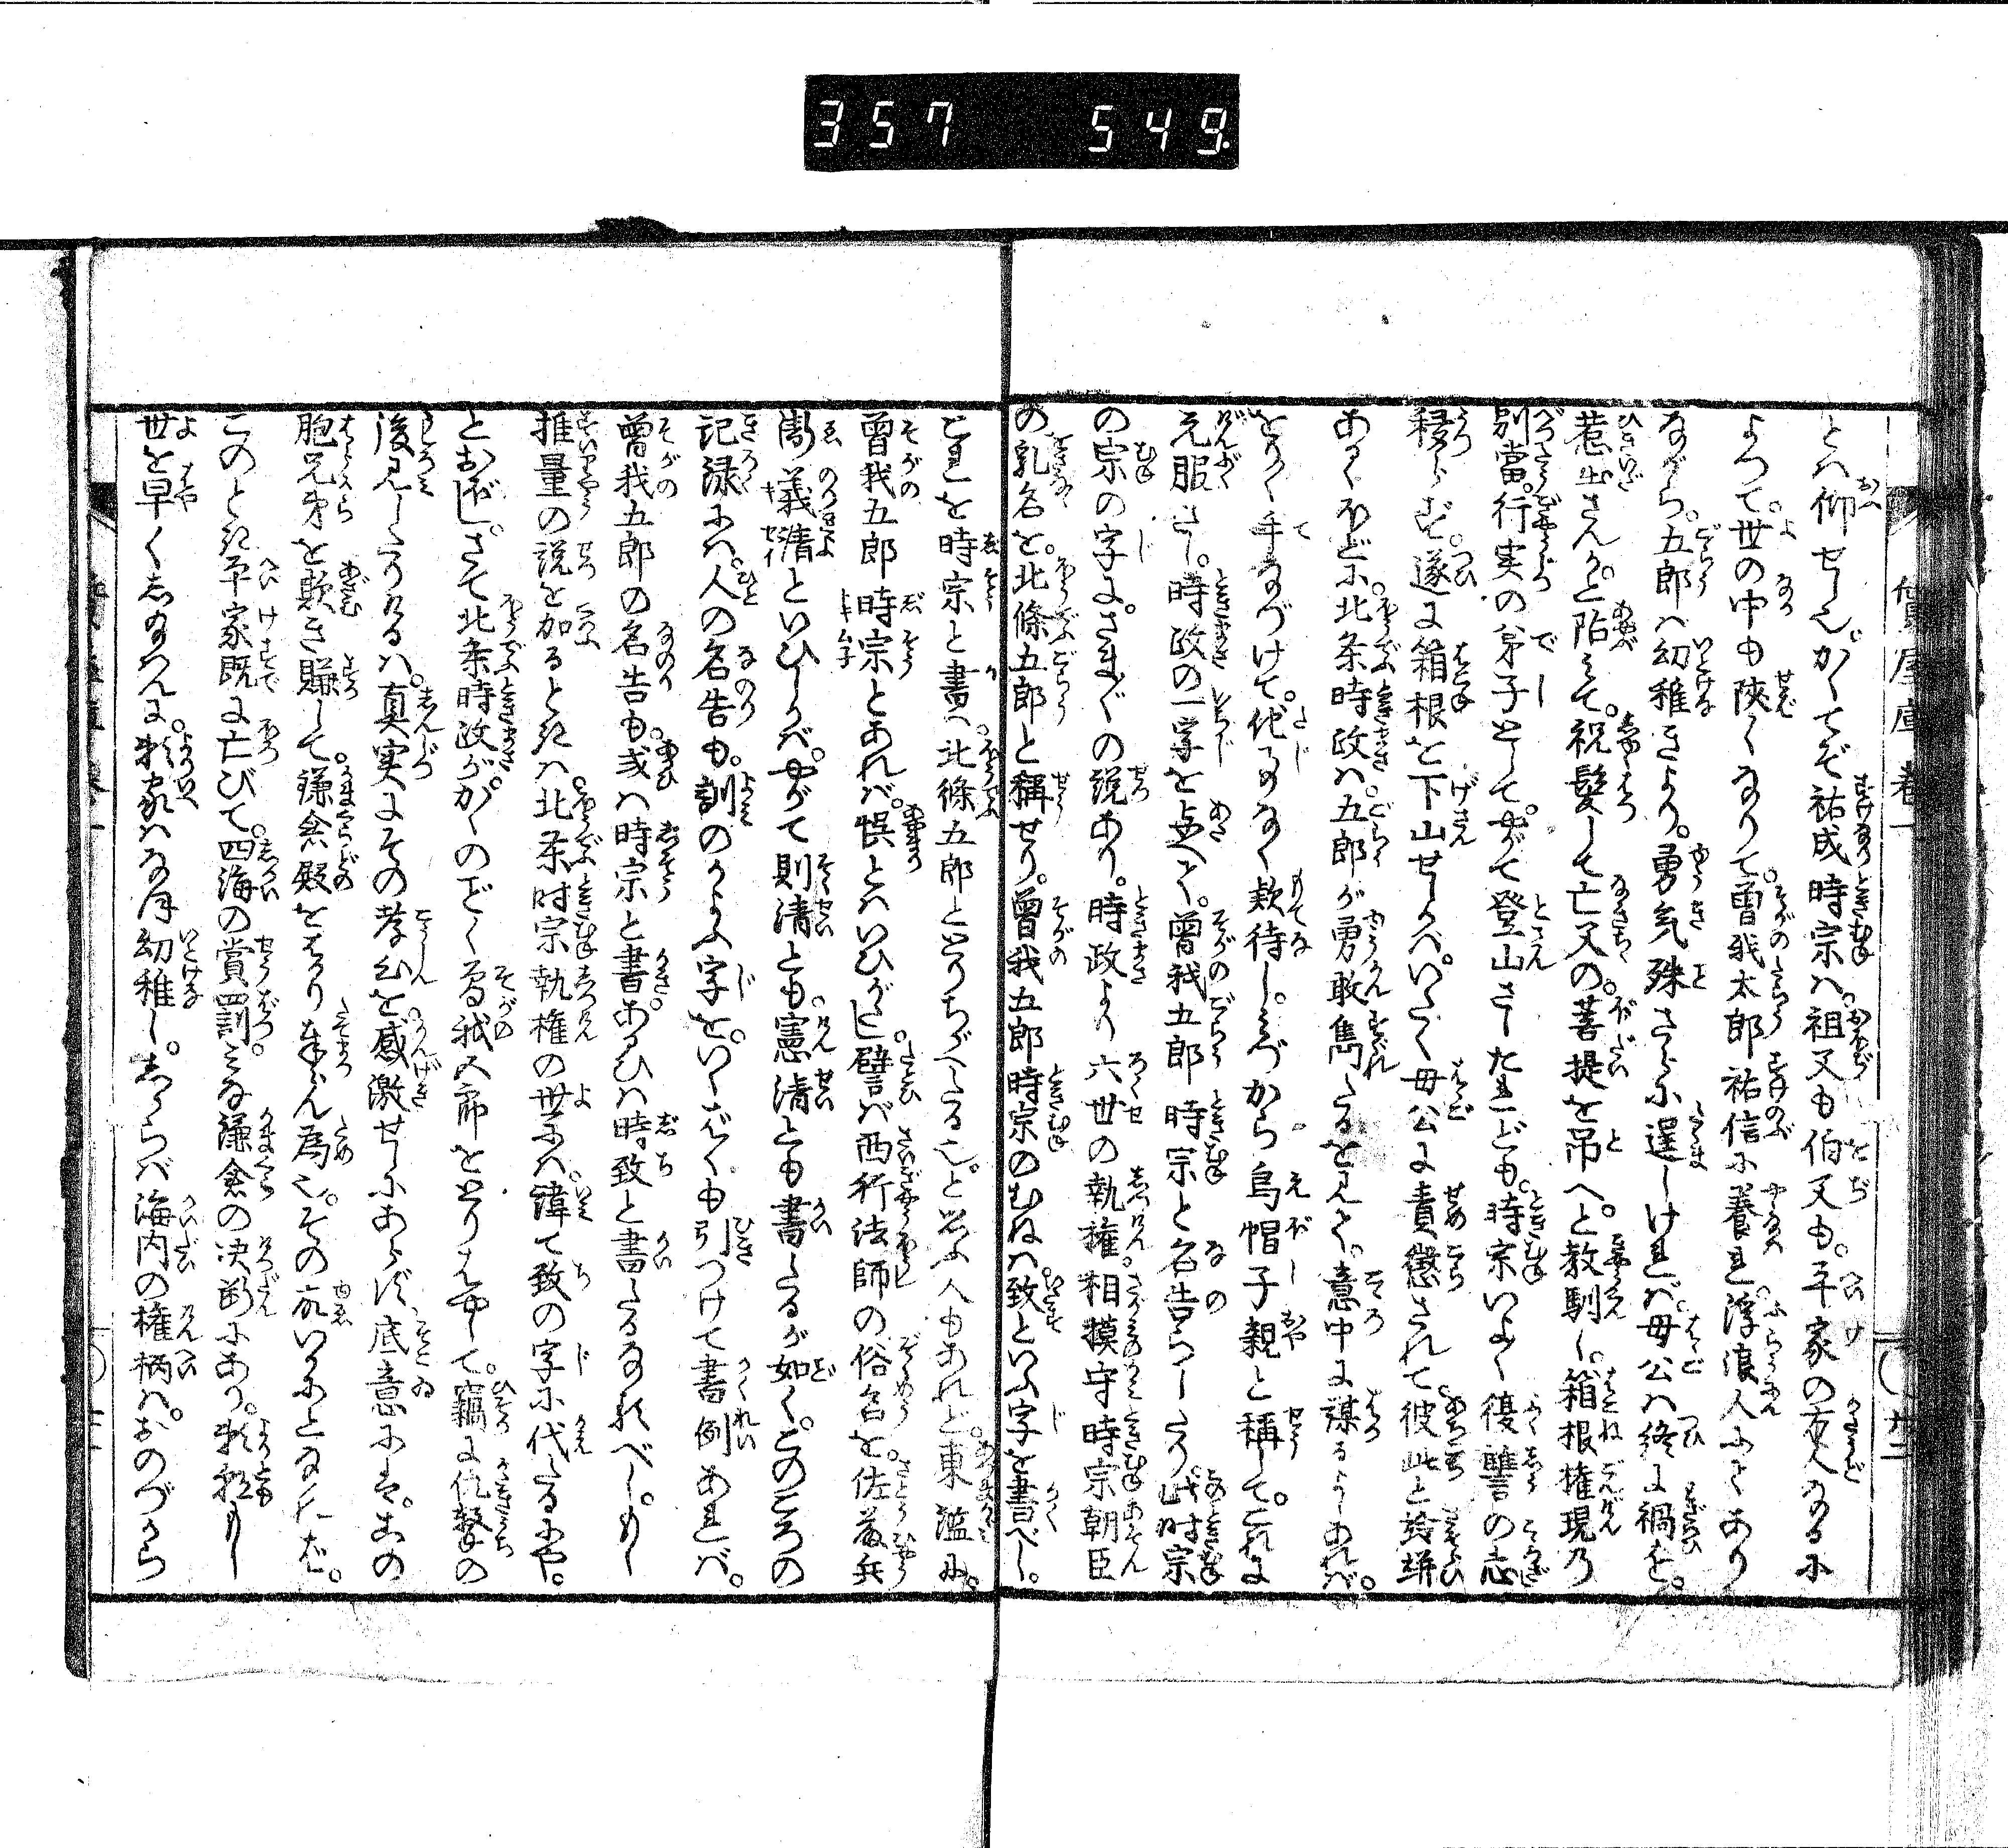 357 549.
とハ仰せしん。かくてぞ祐成時宗ハ。祖父も伯父も。平家の方人なるに
よつて。世の中も陜くなりて。曽我太郎祐信に養れ。浮浪人にてあり
ながら。五郎ハ幼稚きより。勇気殊さらに逞しけれバ。母公ハ終に禍を。
惹出さんかと阽みて。祝髪して亡父の。菩提を吊へと教馴し。箱根権現の
別當。行実の弟子として。やがて登山さしたれども。時宗いよゝ復讐の志
移らず。遂に箱根を下山せしかバ。いたく母公に責懲されて。彼此と
あるほどに。北条時政ハ。五郎が勇敢雋たるを見て。意中に謀るよしあれバ。
とりわき手なづけて。他事なく欵待し。みづから烏帽子親と稱して。これに
元服さし。時政の一字を与へて。曽我五郎時宗と名告らしたり。此時宗
の宗の字に。さま〴〵の説あり。時政より六世の執権。相摸守時宗朝臣
の乳名を。北條五郎と稱せり。曽我五郎時宗のむねハ。致といふ字を書べし。
これを時宗と書ハ。北條五郎ととりちがへたる也。と思ふ人もあれど。東鑑に。
曽我五郎時宗とあれバ。悞とハいひがたし。譬バ西行法師の俗名を。佐藤兵
衞義清といひしかバ。やがて則清とも。憲清とも書たるが如く。このころの
記録にハ。人の名告も。訓のかよふ字を。いくばくも引つけて書例あれバ。
曽我五郎の名告も。或ハ時宗と書。あるひハ時致と書たるなるべし。もし
推量の説を加るときハ。北条時宗執権の世にハ。諱て致の字に代たるにや。
とおぼし。さて北条時政が。かくのごとく曽我五郎をとりはやして。竊に仇撃の
後見したりけるハ。真実にその孝心を。感激せしにあらず。底意にハ。この
胞兄弟を欺き賺して。鎌倉殿をはかり奉らん為也。その故いかにとなれバ。
このとき平家既に亡びて。四海の賞罰。みな鎌倉の决断にあり。頼朝もし
世を早くしなんに。頼家ハなほ幼稚し。しからバ海内の権柄ハ。おのづから